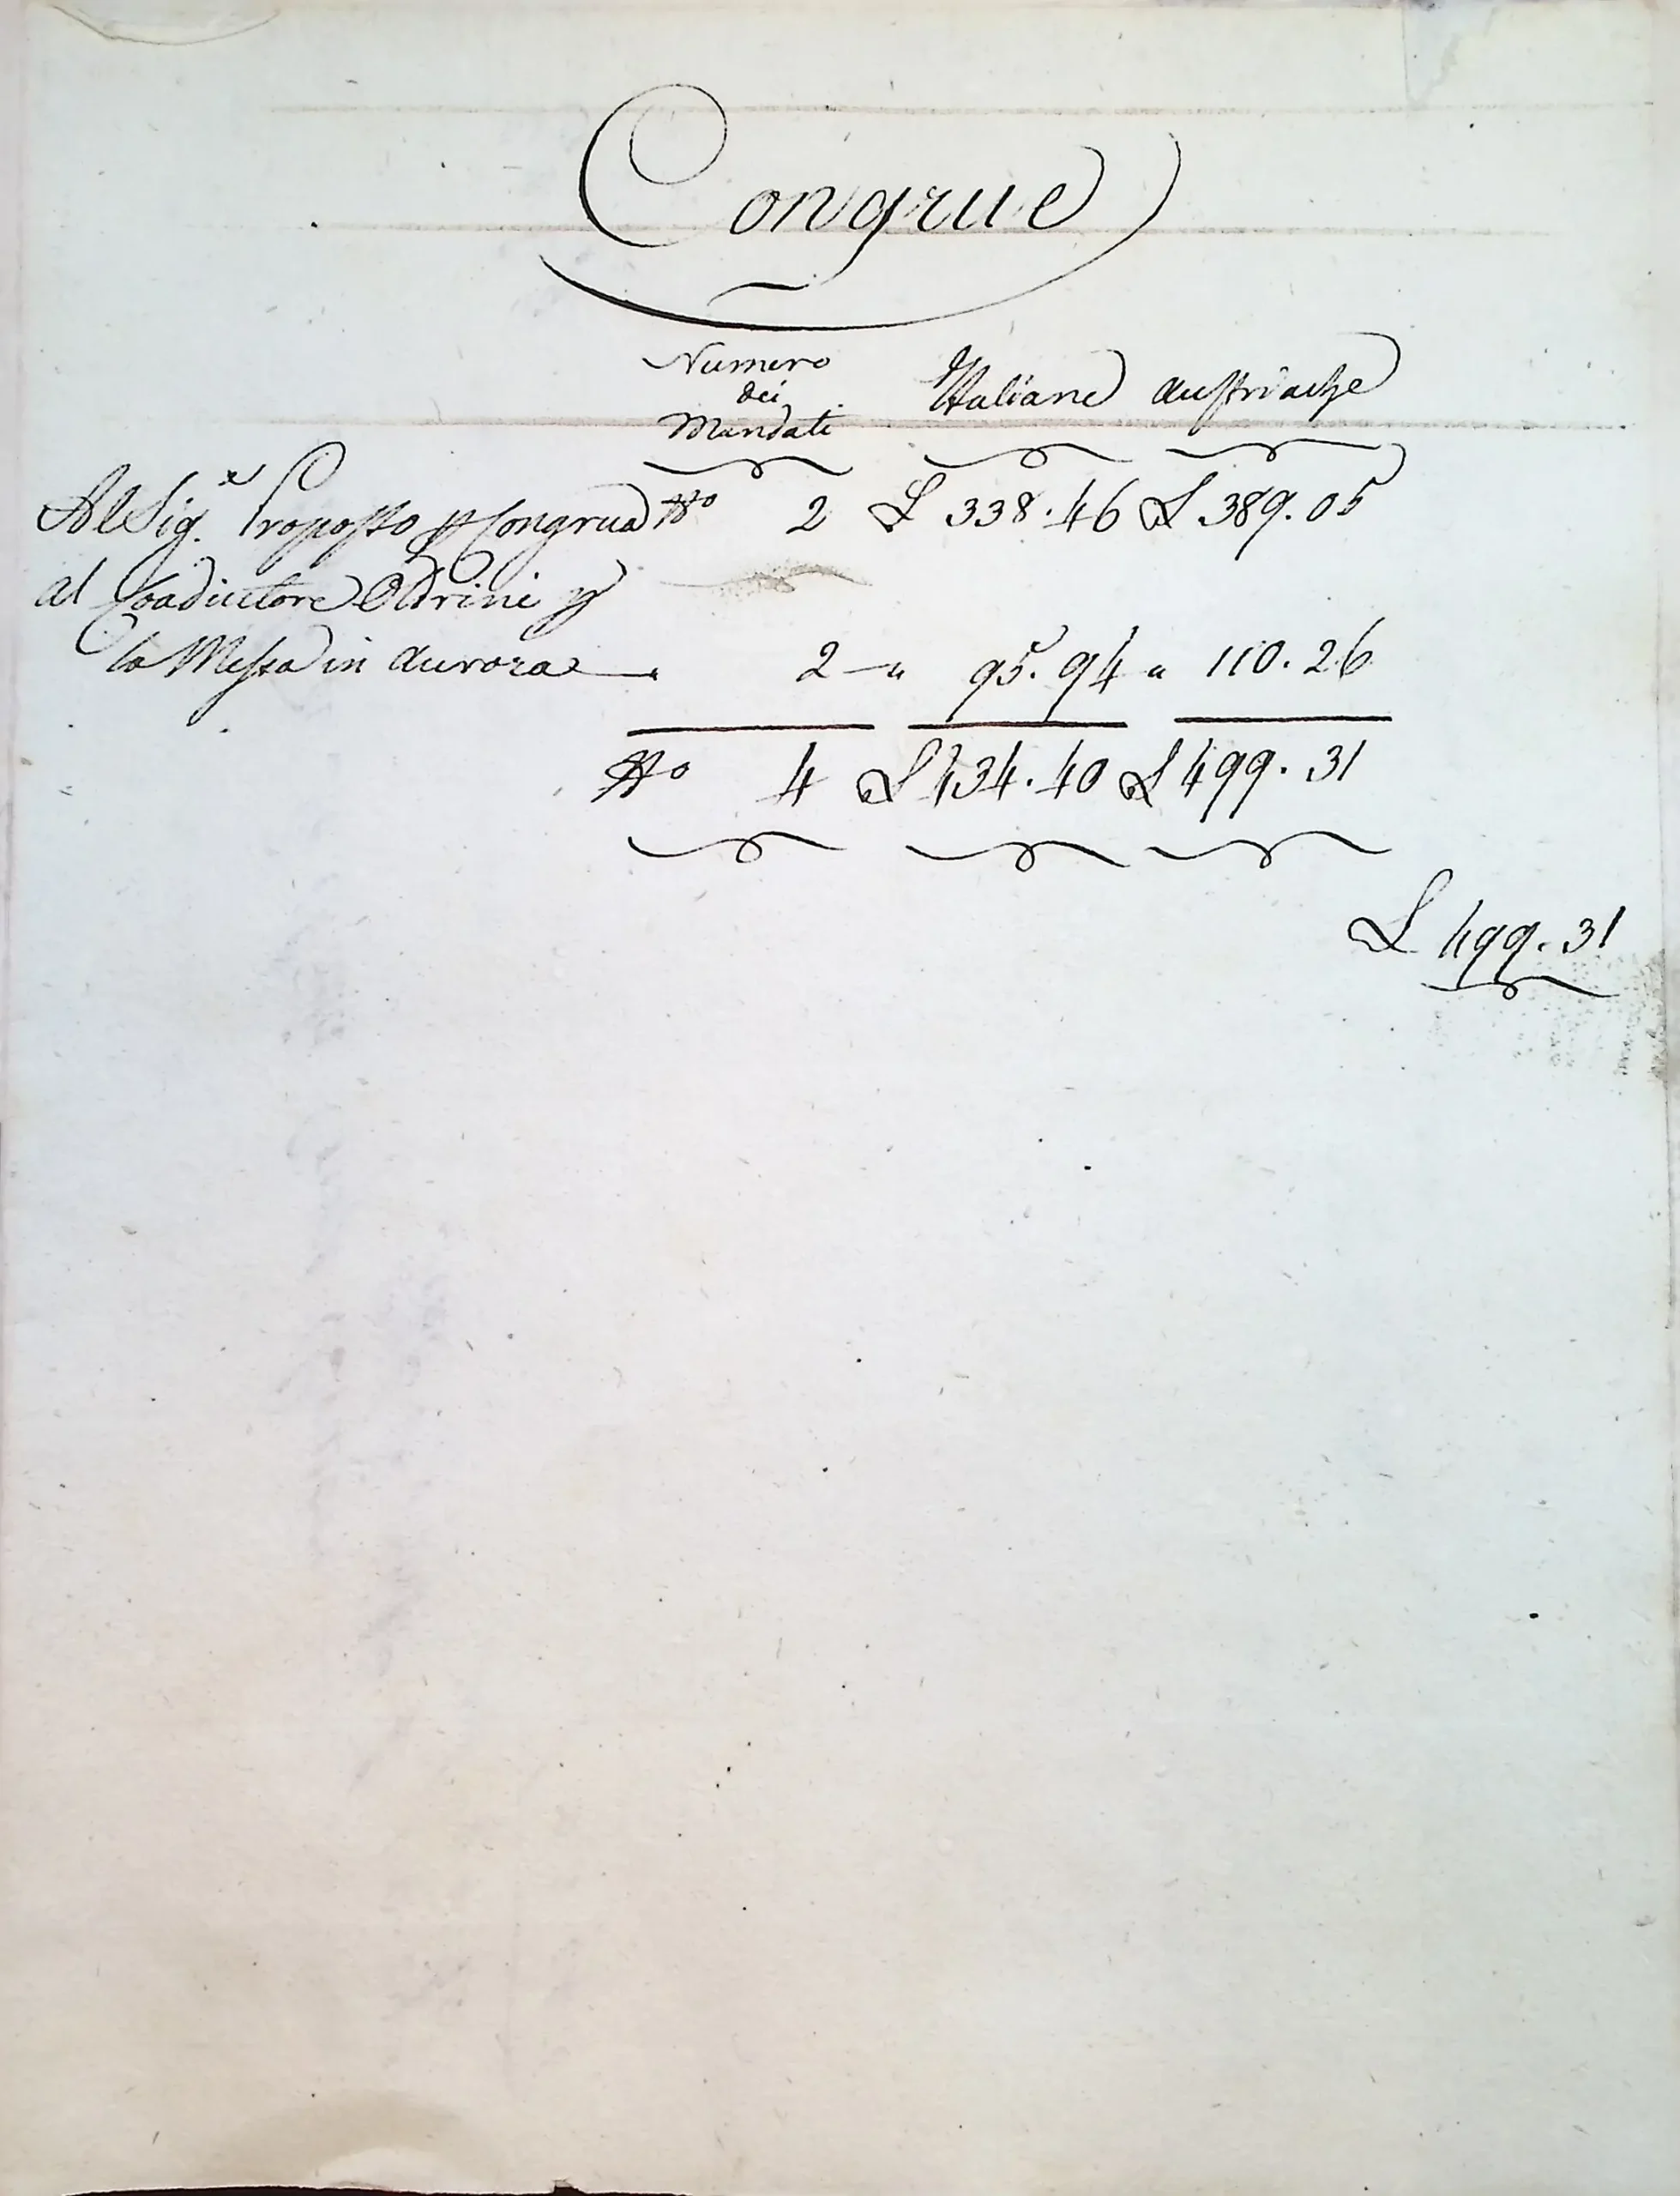 Congrue
Numero dei Mandati Italiane Austriache
Al Sig.r Proposto p Congrua No 2 L 338.46 L 389.05
al Coadiuttore Oldrini p
la Messa in Aurora — 2 — " 95.94 " 110.26
No 4 L 434.40 L 499.31
L 499.31